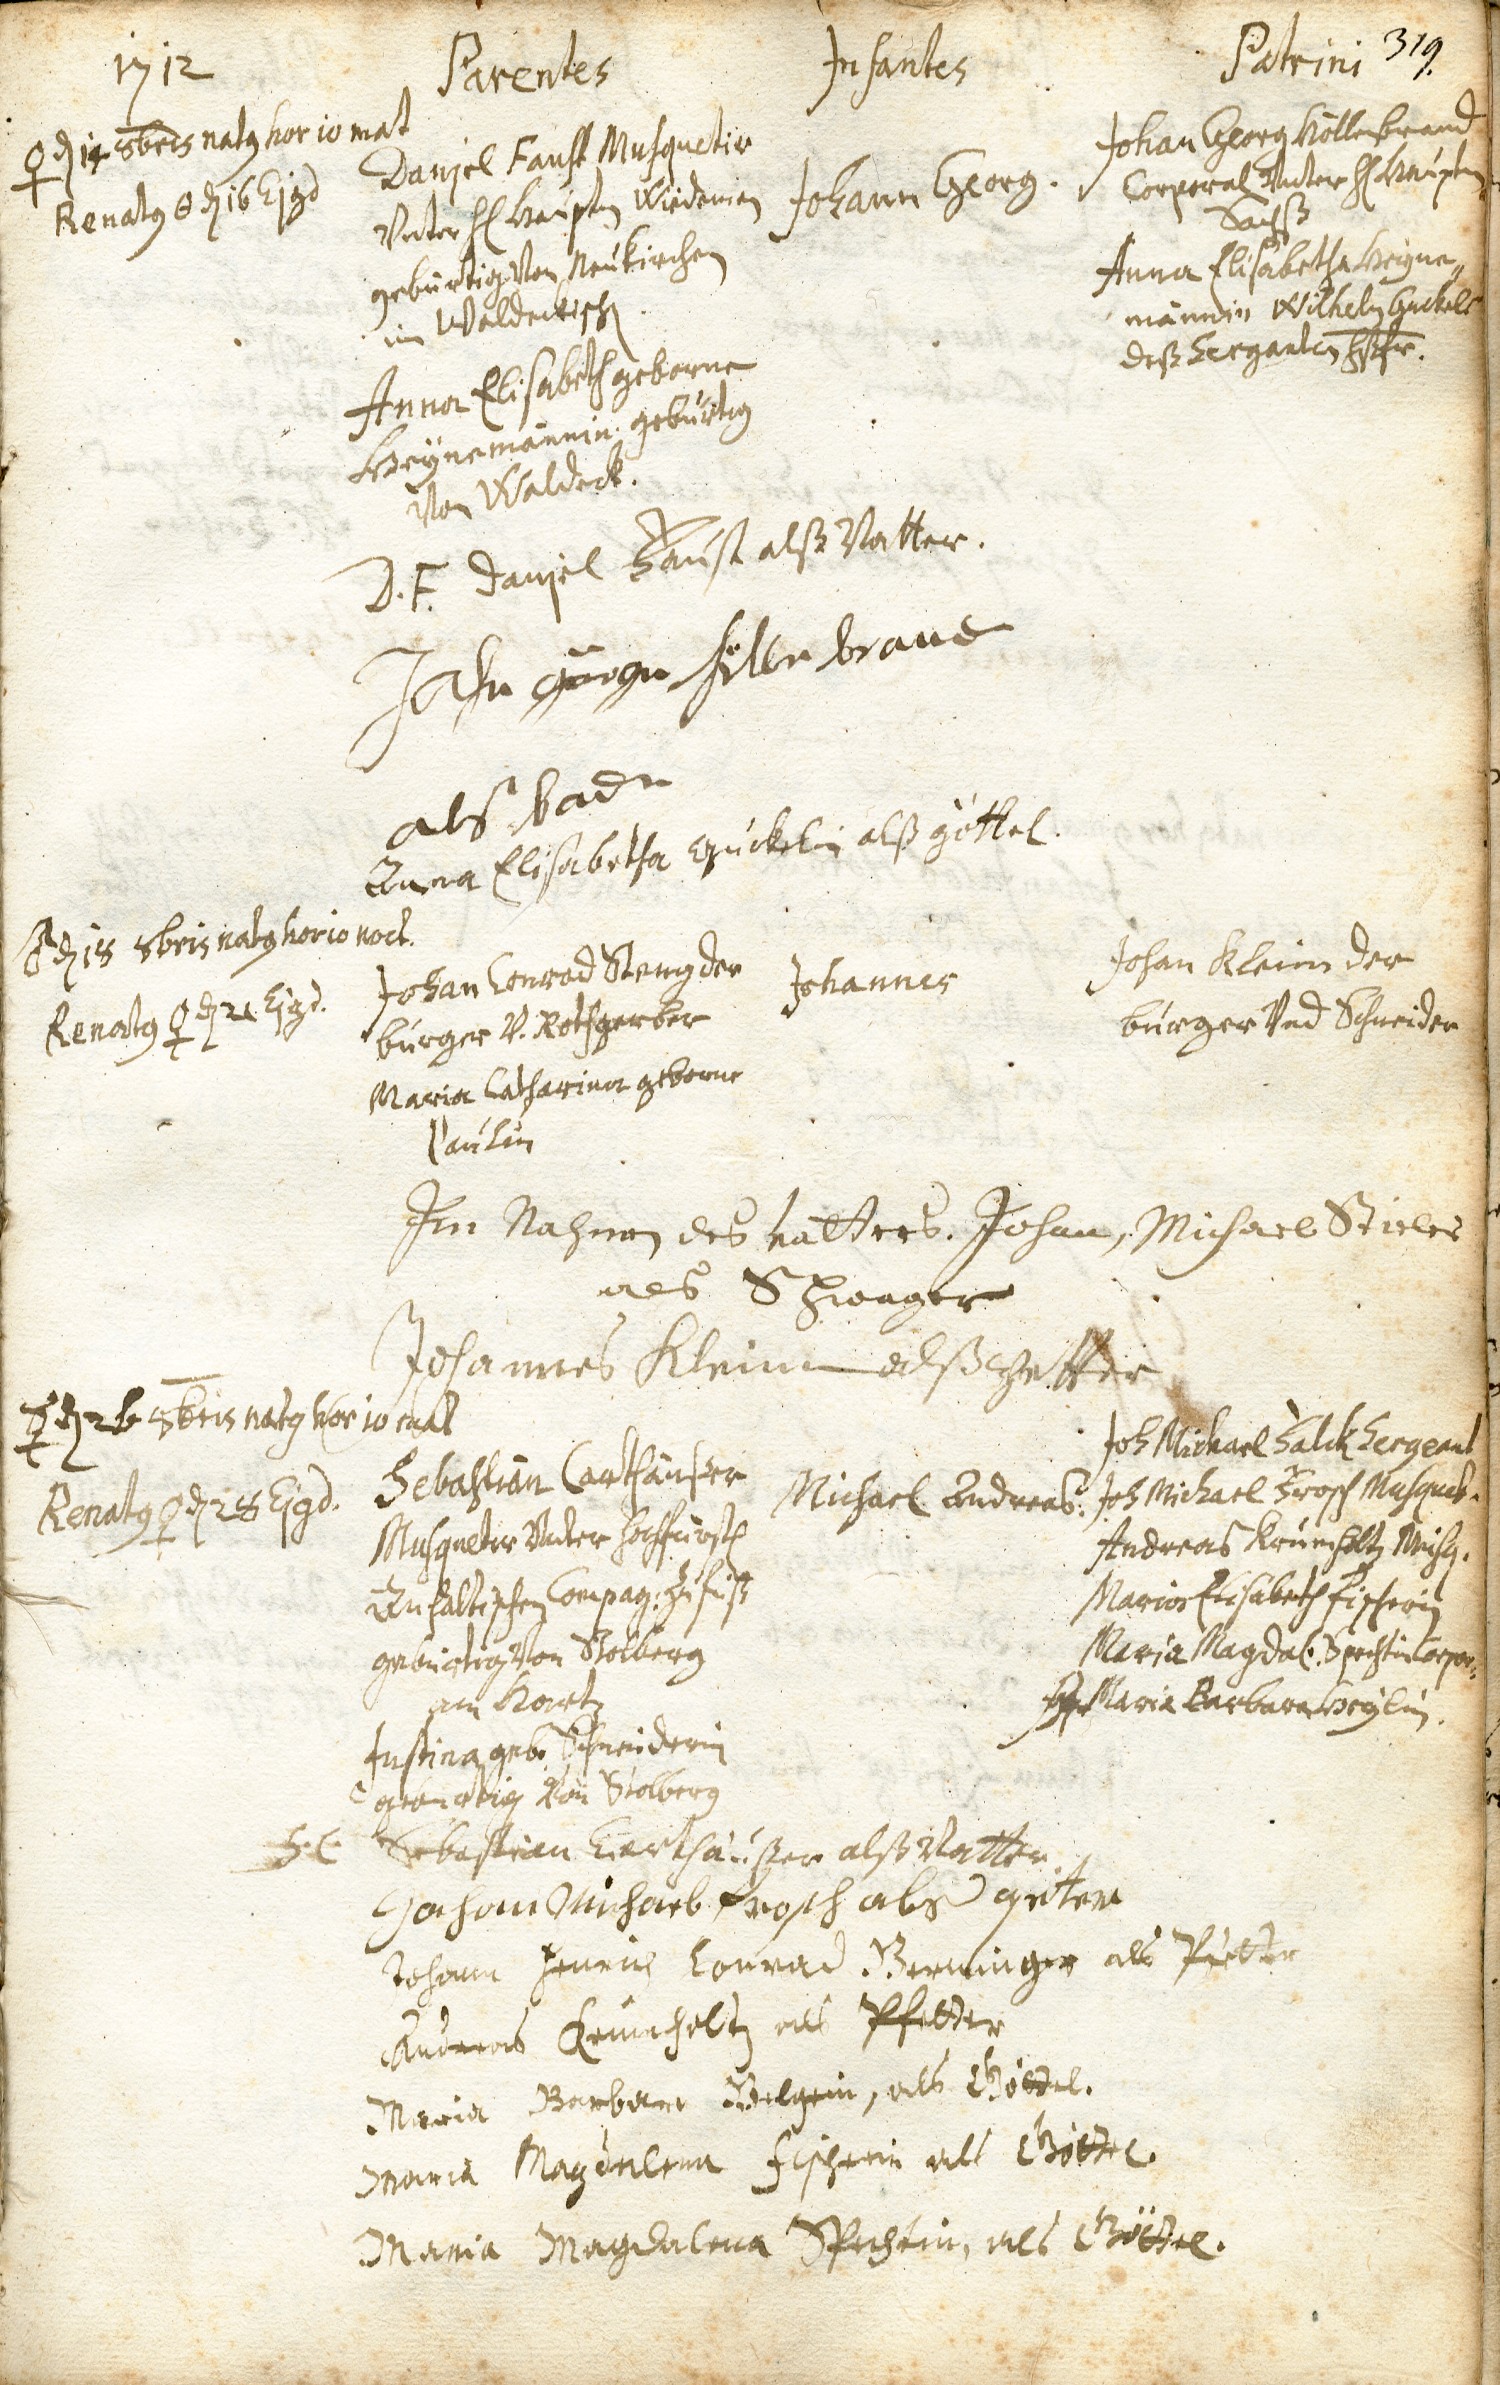 1712 Parentes Infantes Patrini 319.
♀ d 14 8bris natg hor 10 mat
Renatg d 16 Ejgd
Danjel Faust Musquetir
Unter H Hauptm Wiedeman
gebürtig Von Neukirchen
im Waldeckisch
Anna Elisabeth geborne
Heÿnemännin gebürtig
Von Waldeck.
Johann Georg.
Johan Georg Höllenbrand
Corporal Unter H Hauptm
Anna Elisabetha Heyne„
männin Wilhelm Guckels
deß Serganten
D. F. Danjel Faust alß Vatter.
als
Anna Elisabetha Guckelin alß göttel.
d 18 8bris natg hor 10 noct.
Renatg ♀ d 21 Ejgd.
Johan Conrad Steng der
bürger V. Rothgerber
Maria Catharina geborne
Paulin
Johannes
Johan Klein der
bürger Und Schneider
Im Nahmen des vatters. Johan, Michael Stieler
als Schwager
Johannes Klein alß
d 26 8bris natg hor 10 mat
Renatg ♀ d 28 Ejgd.
Sebastian Carthäußer
Musquetir Unter Hochfürstl
Anhaltischen Compag: zu fuß
gebürtig Von Stolberg
am Hartz
Justina geb. Schneiderin
gebürtig Von Stolberg
Michael Andreas.
Joh Michael Falck Sergeant
Joh Michael Frosch Musquet.
Andreas Krumholtz Musq.
Maria Elisabeth Fischerin
Maria Magdal. Spechtin Corpor:
Maria Barbara
S. C. Sebastian Carthäußer alß Vatter
Johann Michael Frosch als
Johann Henrich Conrad Berninger als Petter
Andreas Krumholtz als Pfetter
Maria Barbara als Göttel.
Maria Magdalena Fischerin als Göttel.
Maria Magdalena Spechtin, als Göttel.